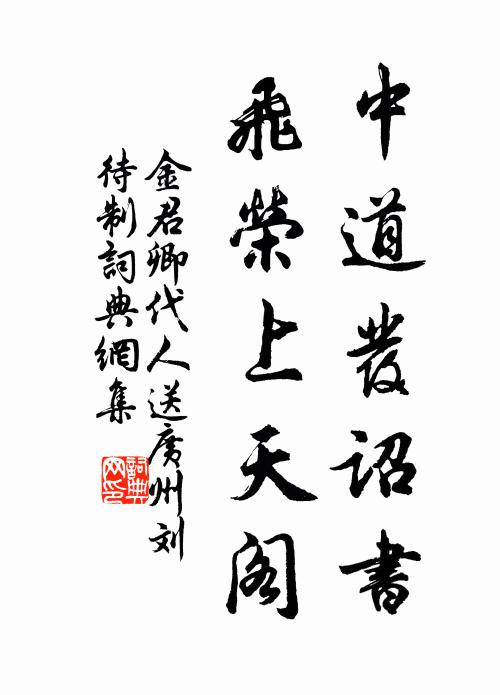 中道發詔書
飛榮上天閣
金君卿代人送廣州刘
待制詞典網集
詞典
网印